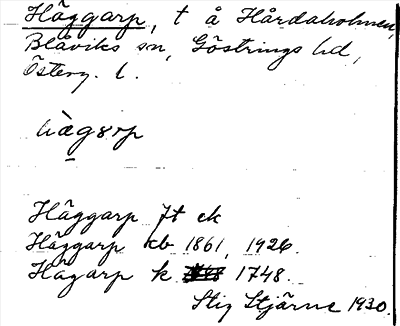 Häggarp, t å Hårdaholmen,
Blåviks sn, Göstrings hd,
Österg. l.
hàgarp
Häggarp Jt ek
Häggarp kb 1861, 1926.
Hägarp k 1748.
Stig Stjärne 1930.